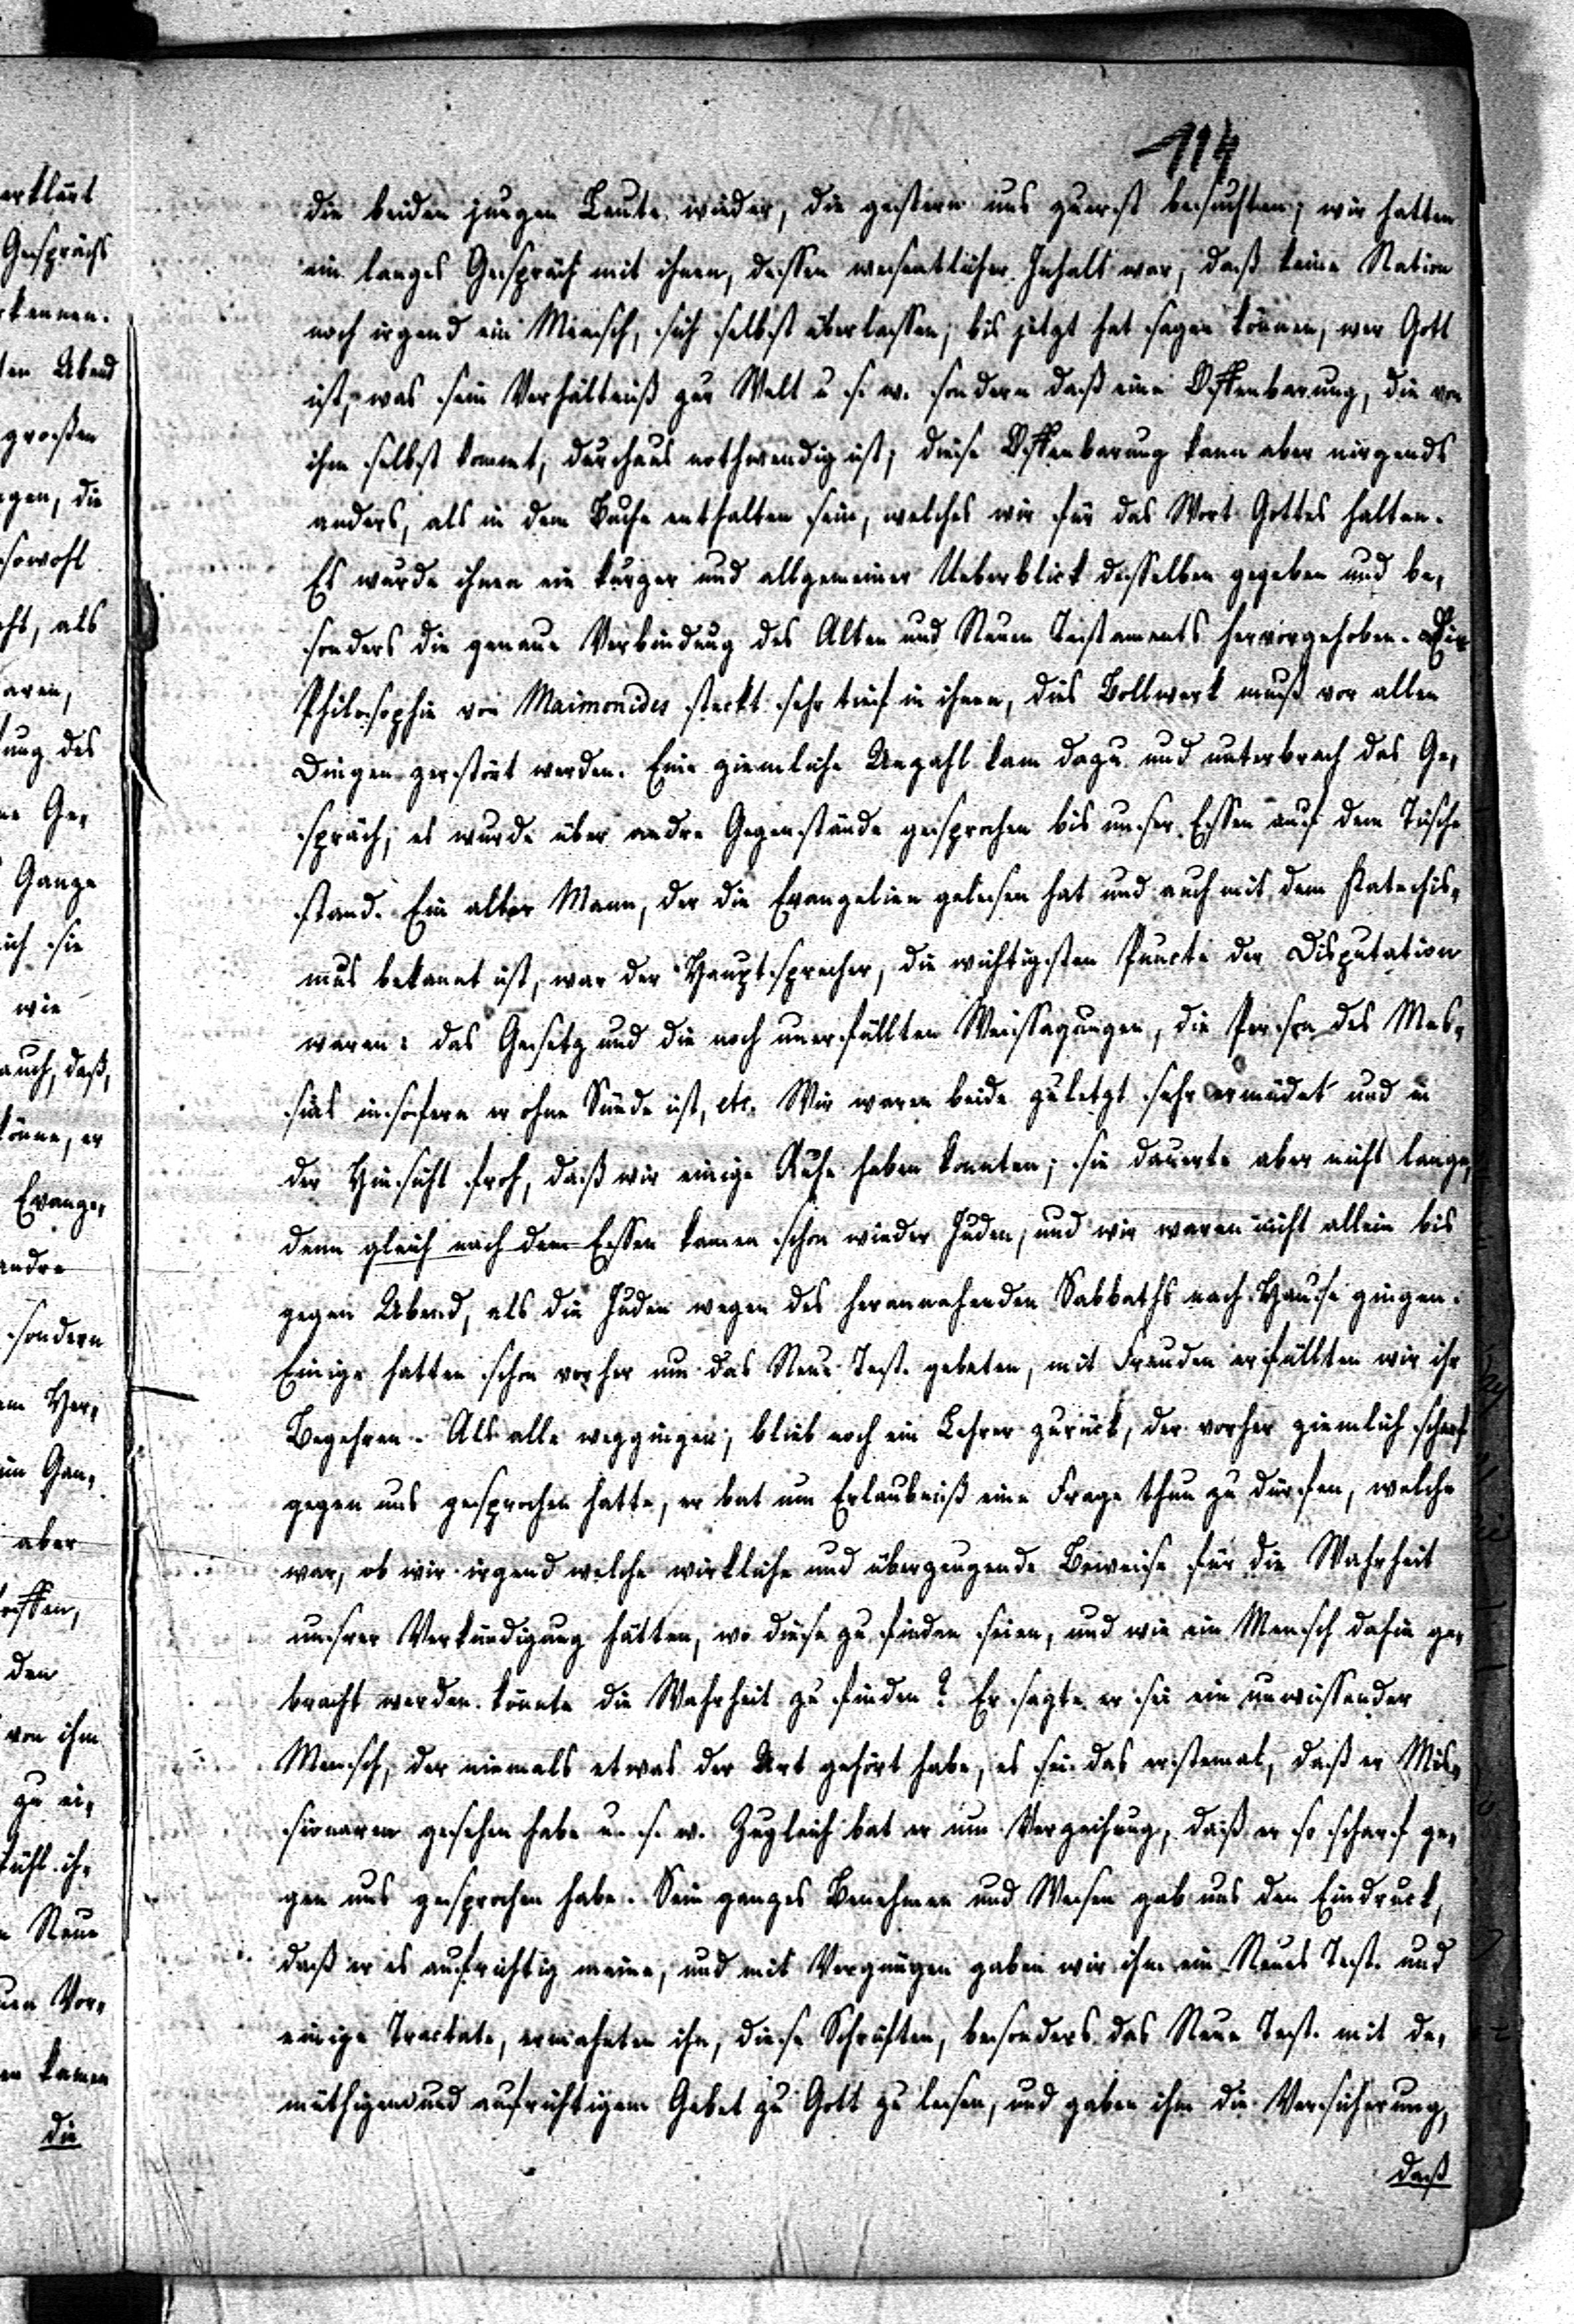 114
die beiden jungen Leute wieder, die gestern uns zuerst besuchten; wir hatten
ein langes Gespräch mit ihnen, dessen wesentlicher Inhalt war, daß keine Nation
noch irgend ein Mensch, sich selbst überlassen, bis jetzt hat sagen können, wer Gott
ist, was sein Verhältniß zur Welt u. s. w. sondern daß eine Offenbarung, die von
ihm selbst kommt, durchaus nothwendig ist; diese Offenbarung kann aber nirgends
anders, als in dem Buche enthalten sein, welches wir für das Wort Gottes halten.
Es wurde ihnen ein kurzer und allgemeiner Ueberblick desselben gegeben und be-
sonders die genaue Verbindung des Alten und Neuen Testaments hervorgehoben. Die
Philosophie von Maimonides steckt sehr tief in ihnen, dies Bollwerk muß vor allen
Dingen zerstört werden. Eine ziemliche Anzahl kam dazu und unterbrach das Ge-
spräch, es wurde über andre Gegenstände gesprochen bis unser Essen auf dem Tische
stand. Ein alter Mann, der die Evangelien gelesen hat und auch mit dem Katechis-
mus bekannt ist, war der Hauptsprecher, die wichtigsten Puncte der Disputation
waren: das Gesetz und die noch unerfüllten Weissagungen, die Person des Mes-
sias insofern er ohne Sünde ist, etc. Wir waren beide zuletzt sehr ermüdet und in
der Hinsicht froh, daß wir einige Ruhe haben konnten; sie dauerte aber nicht lange,
denn gleich nach dem Essen kamen schon wieder Juden, und wir waren nicht allein bis
gegen Abend, als die Juden wegen des herannahenden Sabbaths nach Hause gingen.
Einige hatten schon vorher um das Neue Test. gebeten, mit Freuden erfüllten wir ihr
Begehren. Als alle weggingen, blieb noch ein Lehrer zurück, der vorher ziemlich scharf
gegen uns gesprochen hatte, er bat um Erlaubniß eine Frage thun zu dürfen, welche
war, ob wir irgend welche wirkliche und überzeugende Beweise für die Wahrheit
unsrer Verkündigung hätten, wo diese zu finden seien, und wie ein Mensch dahin ge-
bracht werden könnte die Wahrheit zu finden? Er sagte er sei ein unwissender
Mensch, der niemals etwas der Art gehört habe, es sei das erstemal, daß er Mis-
sionaren gesehen habe u. s. w. Zugleich bat er um Verzeihung, daß er so scharf ge-
gen uns gesprochen habe. Sein ganzes Benehmen und Wesen gab uns den Eindruck,
daß er es aufrichtig meine, und mit Vergnügen gaben wir ihm ein Neues Test. und
einige Tractate, ermahnten ihn, diese Schriften, besonders das Neue Test. mit de-
müthigem und aufrichtigem Gebet zu Gott zu lesen, und gaben ihm die Versicherung,
daß